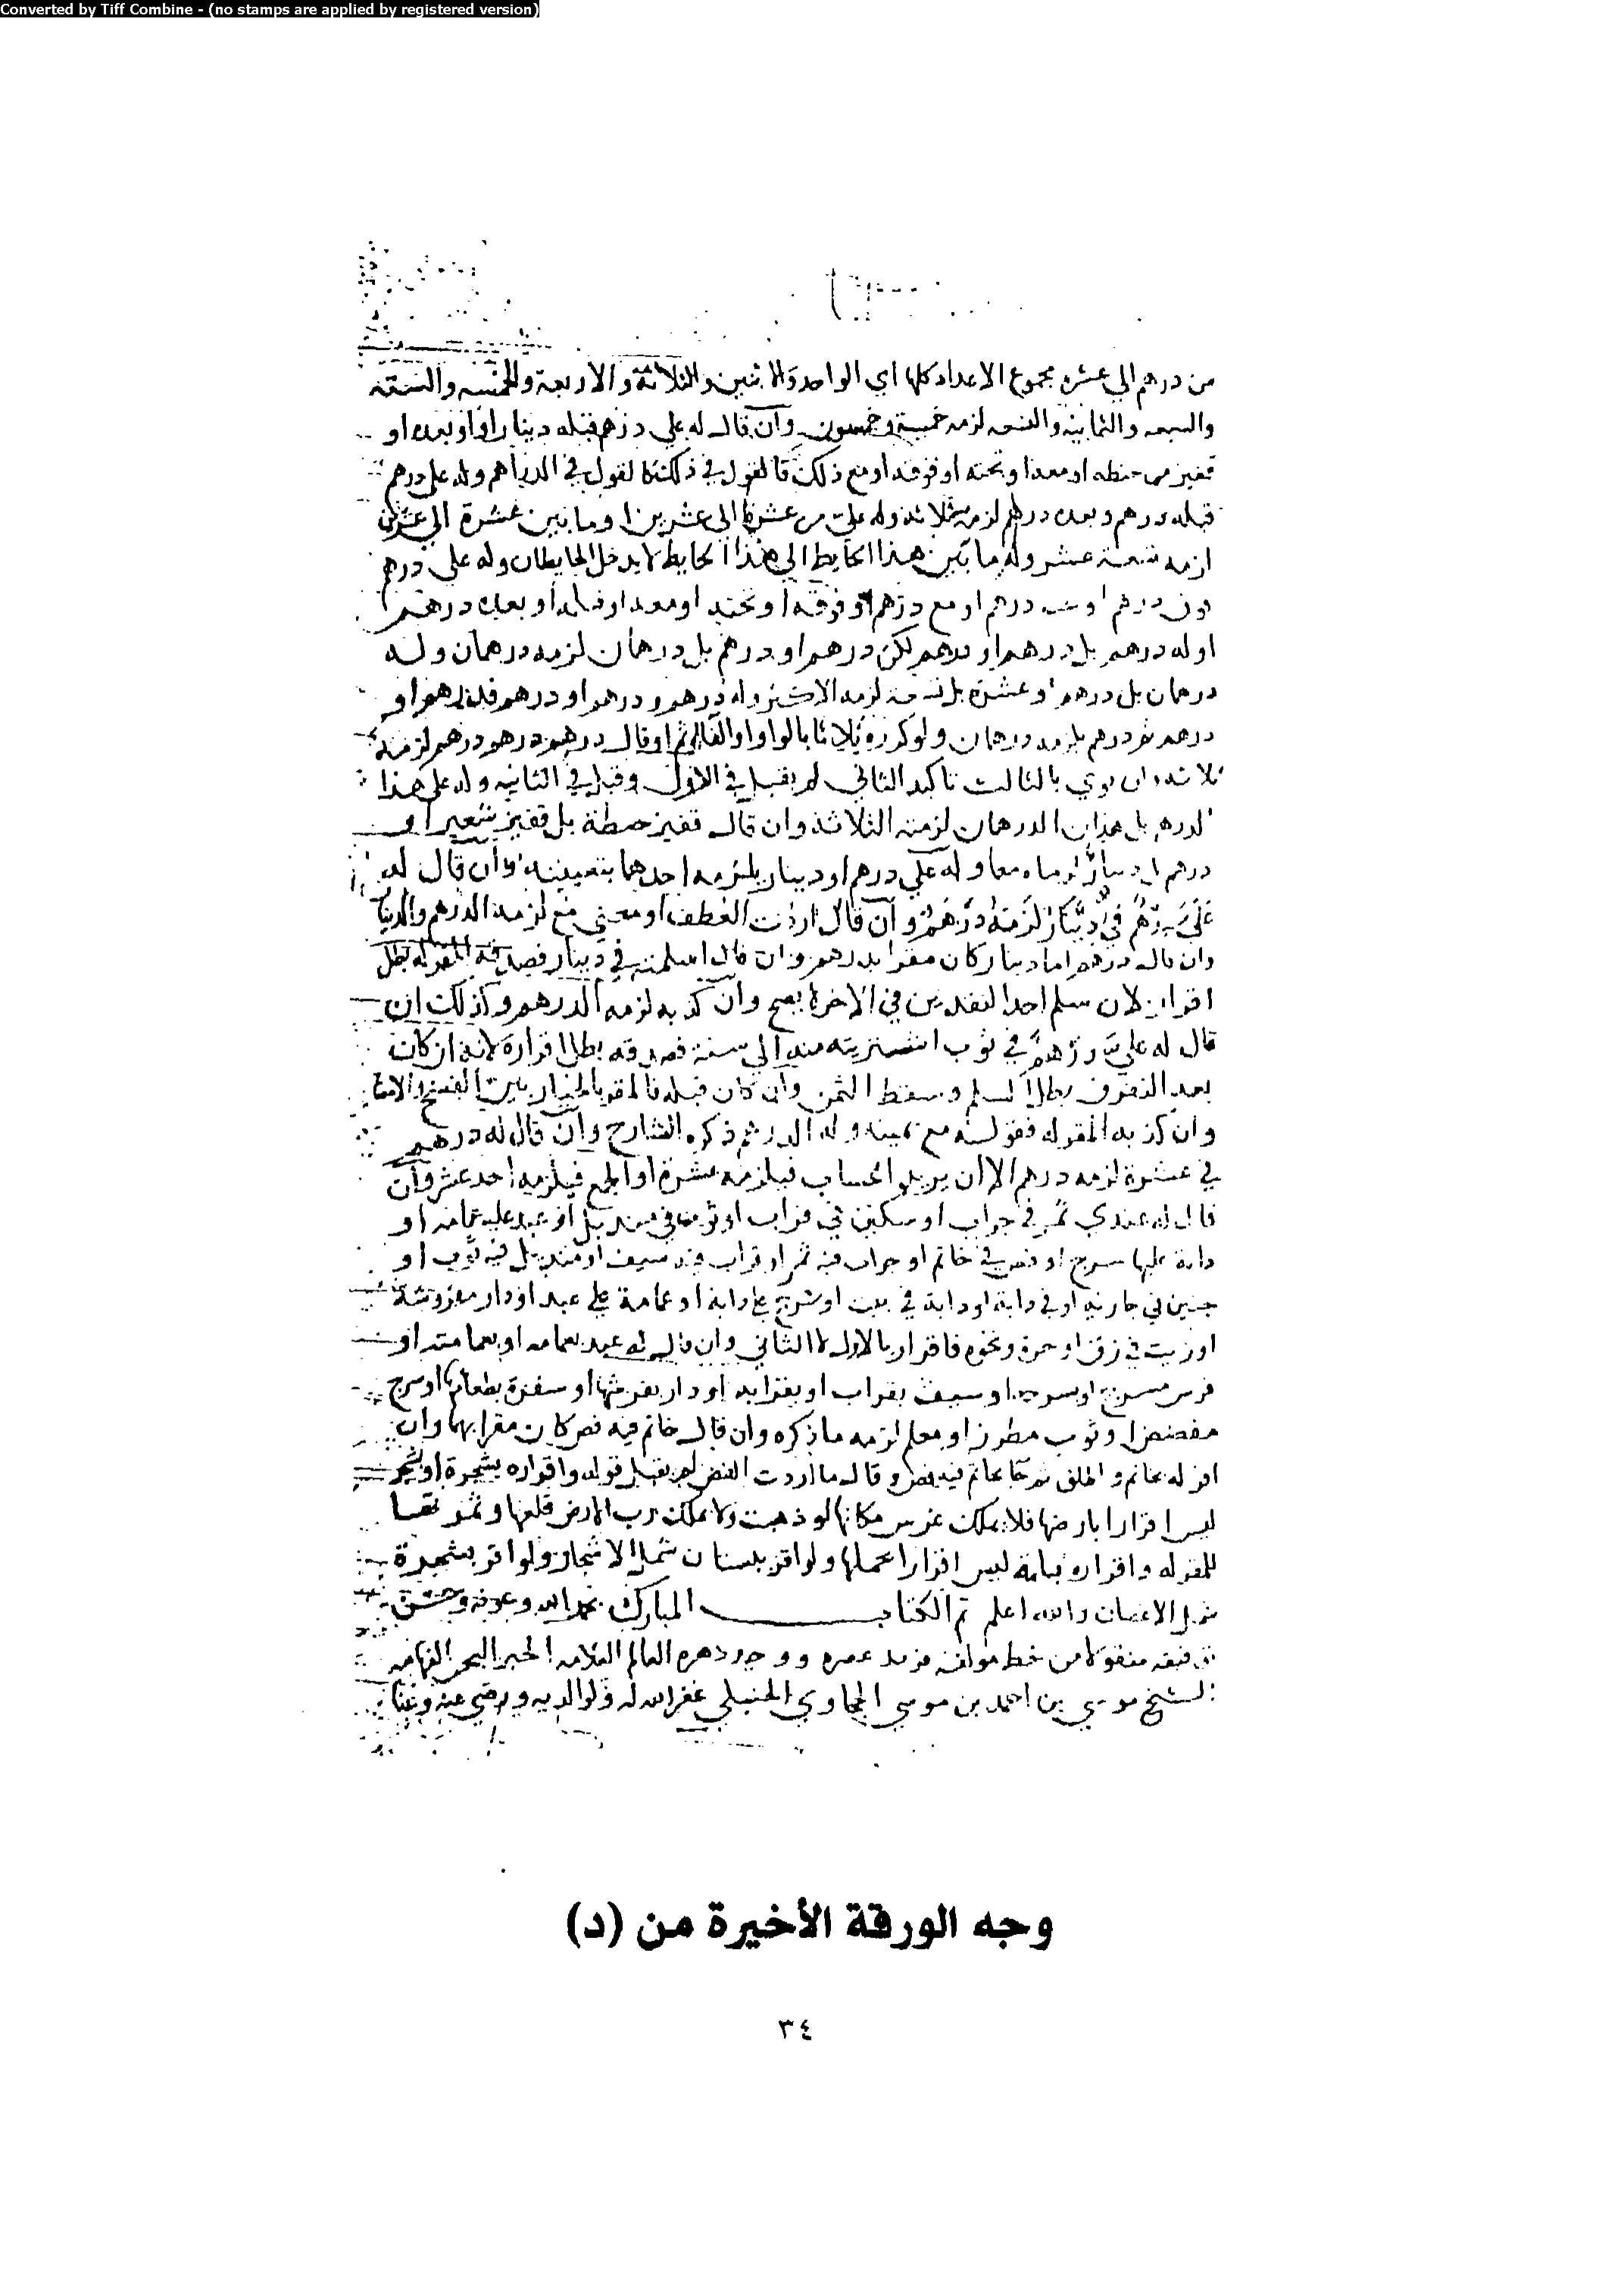 Converted by Tiff Combine - (no stamps are applied by registered version)
من درهم الي عشره مجموع الاعداد كلها اي الواحد والاثنين والثلاثة والاربعة والخمسه والسته
والسبعه والثمانية والتسعه لزمه خمسة وخمسون وان قال له علي درهم قبله دينار او بعده او
قفيز من حنطه او معه او تحته او فوقه او مع ذلك فالقول في ذلك كالقول في الدراهم وله علي درهم
قبله درهم وبعده درهم لزمه ثلاثه وله علي من عشرة الي عشرين او ما بين عشرة الي عشرين
لزمه تسعة عشر وله ما بين هذا الحايط الي هذا الحايط لا يدخل الحايطان وله علي درهم
درهم او مع درهم او فوقه او تحته او معه او قبله او بعده درهم
او له درهم بل درهم او درهم لكن درهم او درهم بل درهمان لزمه درهمان وله
درهمان بل درهم او عشرة بل تسعة لزمه الاكثر وله درهم ودرهم او درهم فدرهم او
درهم ثم درهم يلزمه درهمان ولو كرره ثلاثا بالواو او الفا او ثم او قال درهم درهم درهم لزمته
ثلاثه وان نوي بالثالث تاكيد الثاني لم يقبل في الاول وقبل في الثانيه وله علي هذا
الدرهم بل هذان الدرهمان لزمته الثلاثة وان قال قفيز حنطة بل قفيز شعير او
درهم بل دينار لزماه معا وله علي درهم او دينار يلزمه احدهما بتعيينه وان قال له
علي درهم في دينار لزمه درهم وان قال اردت العطف او معني مع لزمه الدرهم والدينار
وان قال درهم اما دينار كان مقرا بدرهم وان قال اسلمته في دينار فصدقه المقر له بطل
اقراره لان سلم احد النقدين في الاخر لا يصح وان كذبه لزمه الدرهم وكذلك ان
قال له علي درهم في ثوب اشتريته منه الي سنة فصدقه بطل اقراره لانه ان كان
بعد التفرق بطل السلم وسقط الثمن وان كان قبله فالمقر بالخيار بين الفسخ والامضا
وان كذبه المقر له فقوله مع يمينه وله الدرهم ذكره الشارح وان قال له درهم
في عشرة لزمه درهم الا ان يريد الحساب فيلزمه عشرة او الجمع فيلزمه احد عشر وان
قال له عندي تمر في جراب او سكين في قراب او ثوب في منديل او عبد عليه عمامه او
دابة عليها سرج او فص في خاتم او جراب فيه تمر او قراب فيه سيف او منديل فيه ثوب او
جنين في جاريه او في دابة او دابة في بيت او سرج علي دابة او عمامة علي عبد او دار مفروشة
او زيت في زق او جرة ونحوه فاقرار بالاول لا الثاني وان قال له عبد بعمامه او بعمامته او
فرس مسرج او بسرجه او سيف بقراب او بقرابه او دار بفرشها او سفرة بطعامها او سرج
مفضض او ثوب مطرز او معلم لزمه ما ذكره وان قال خاتم فيه فص كان مقرا بهما وان
اقر له بخاتم واطلق ثم جا بخاتم فيه فص وقال ما اردت الفص لم يقبل قوله واقراره بشجرة او شجر
ليس اقرارا بارضها فلا يملك غرس مكانها لو ذهبت ولا يملك رب الارض قلعها وثمرتها
للمقر له واقراره بامة ليس اقرارا بحملها ولو اقر ببستان شمل الاشجار ولو اقر بشجرة
شمل الاغصان والله اعلم تم الكتاب المبارك بحمد الله وعونه وحسن
توفيقه منقولا من خط مولفه فريد عصره ووحيد دهره العالم العلامه الحبر البحر الفهامه
الشيخ موسي بن احمد بن موسي الحجاوي الحنبلي غفر الله له ولوالديه ورضي عنه وعنا
وجه الورقة الأخيرة من (د)
٣٤